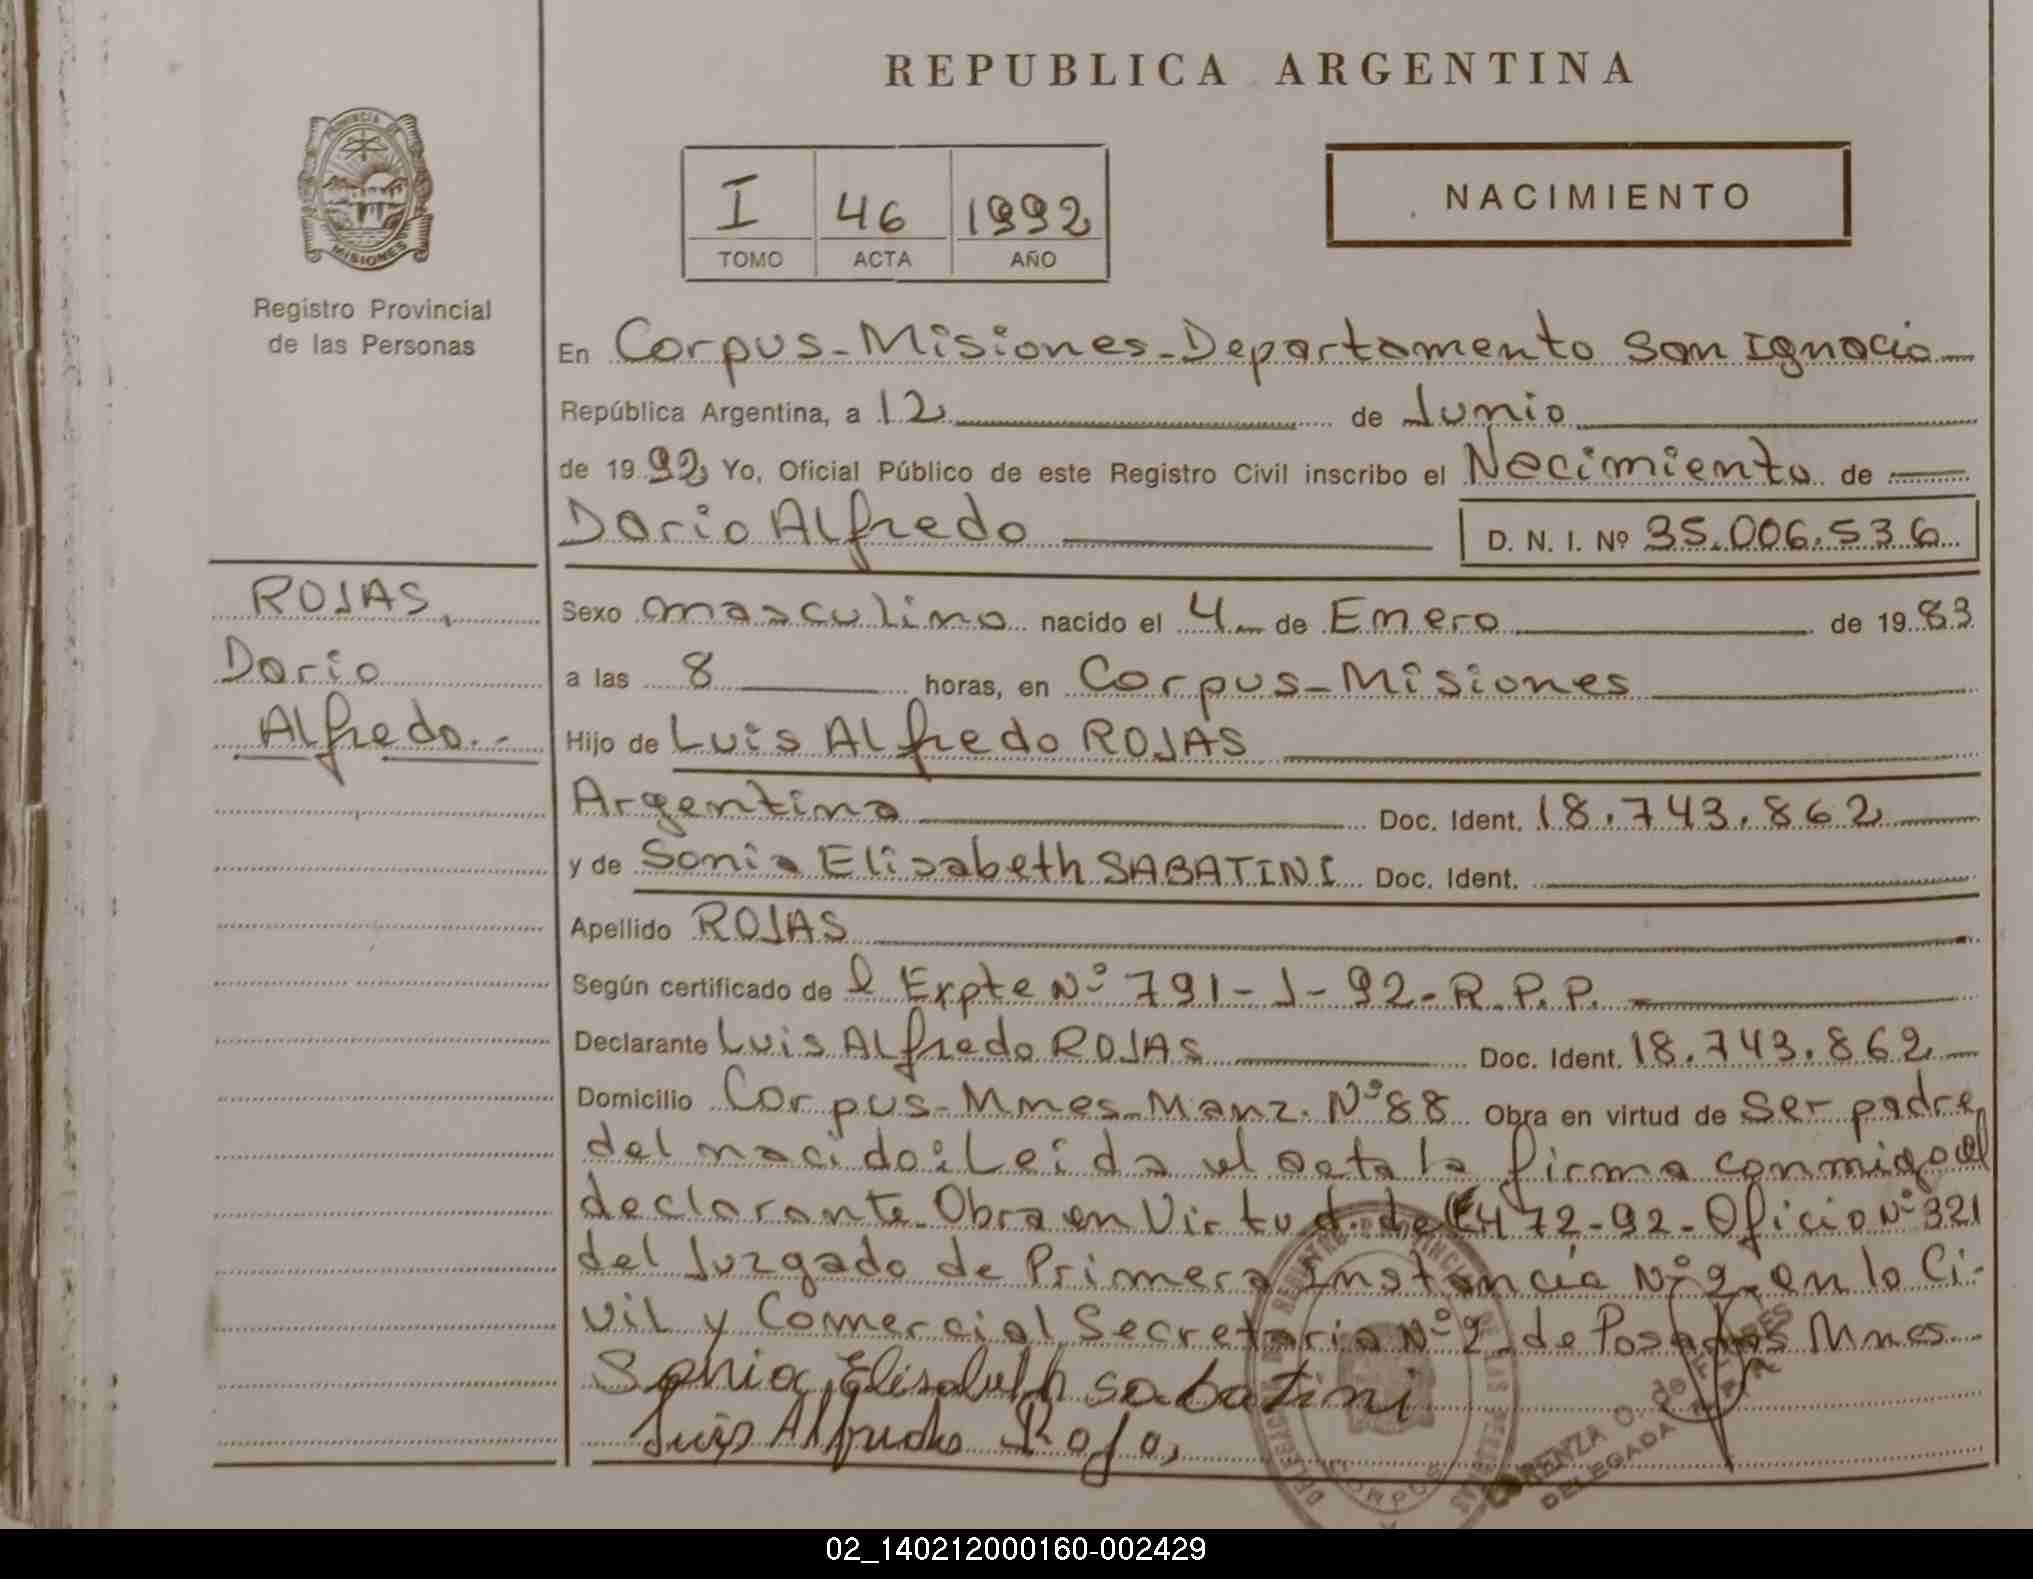 REPUBLICA ARGENTINA
PROVINCIA DE
MISIONES
Registro Provincial
de las Personas
I 46 1992
TOMO ACTA AÑO
NACIMIENTO
En Corpus-Misiones-Departamento San Ignacio
República Argentina, a 12 de Junio
de 1992 Yo, Oficial Público de este Registro Civil inscribo el Nacimiento de
Dario Alfredo D. N. I. Nº 35.006.536
ROJAS,
Dario
Alfredo.-
Sexo masculino nacido el 4 de Enero de 1983
a las 8 horas, en Corpus-Misiones
Hijo de Luis Alfredo ROJAS
Argentina Doc. Ident. 18.743.862
y de Sonia Elisabeth SABATINI Doc. Ident.
Apellido ROJAS
Según certificado de l Expte Nº 791-J-92-R.P.P.
Declarante Luis Alfredo ROJAS Doc. Ident. 18.743.862
Domicilio Corpus-Mnes-Manz. Nº 88 Obra en virtud de ser padre
del nacido: Leida el acta la firma conmigo el
declarante-Obra en Virtud de 472-92-Oficio Nº 321
del Juzgado de Primera Instancia Nº 2 en lo Ci-
vil y Comercial Secretaria Nº 2 de Posadas Mnes
Sonia Elisabeth Sabatini
Luis Alfredo Rojas
DELEGADA
02_140212000160-002429